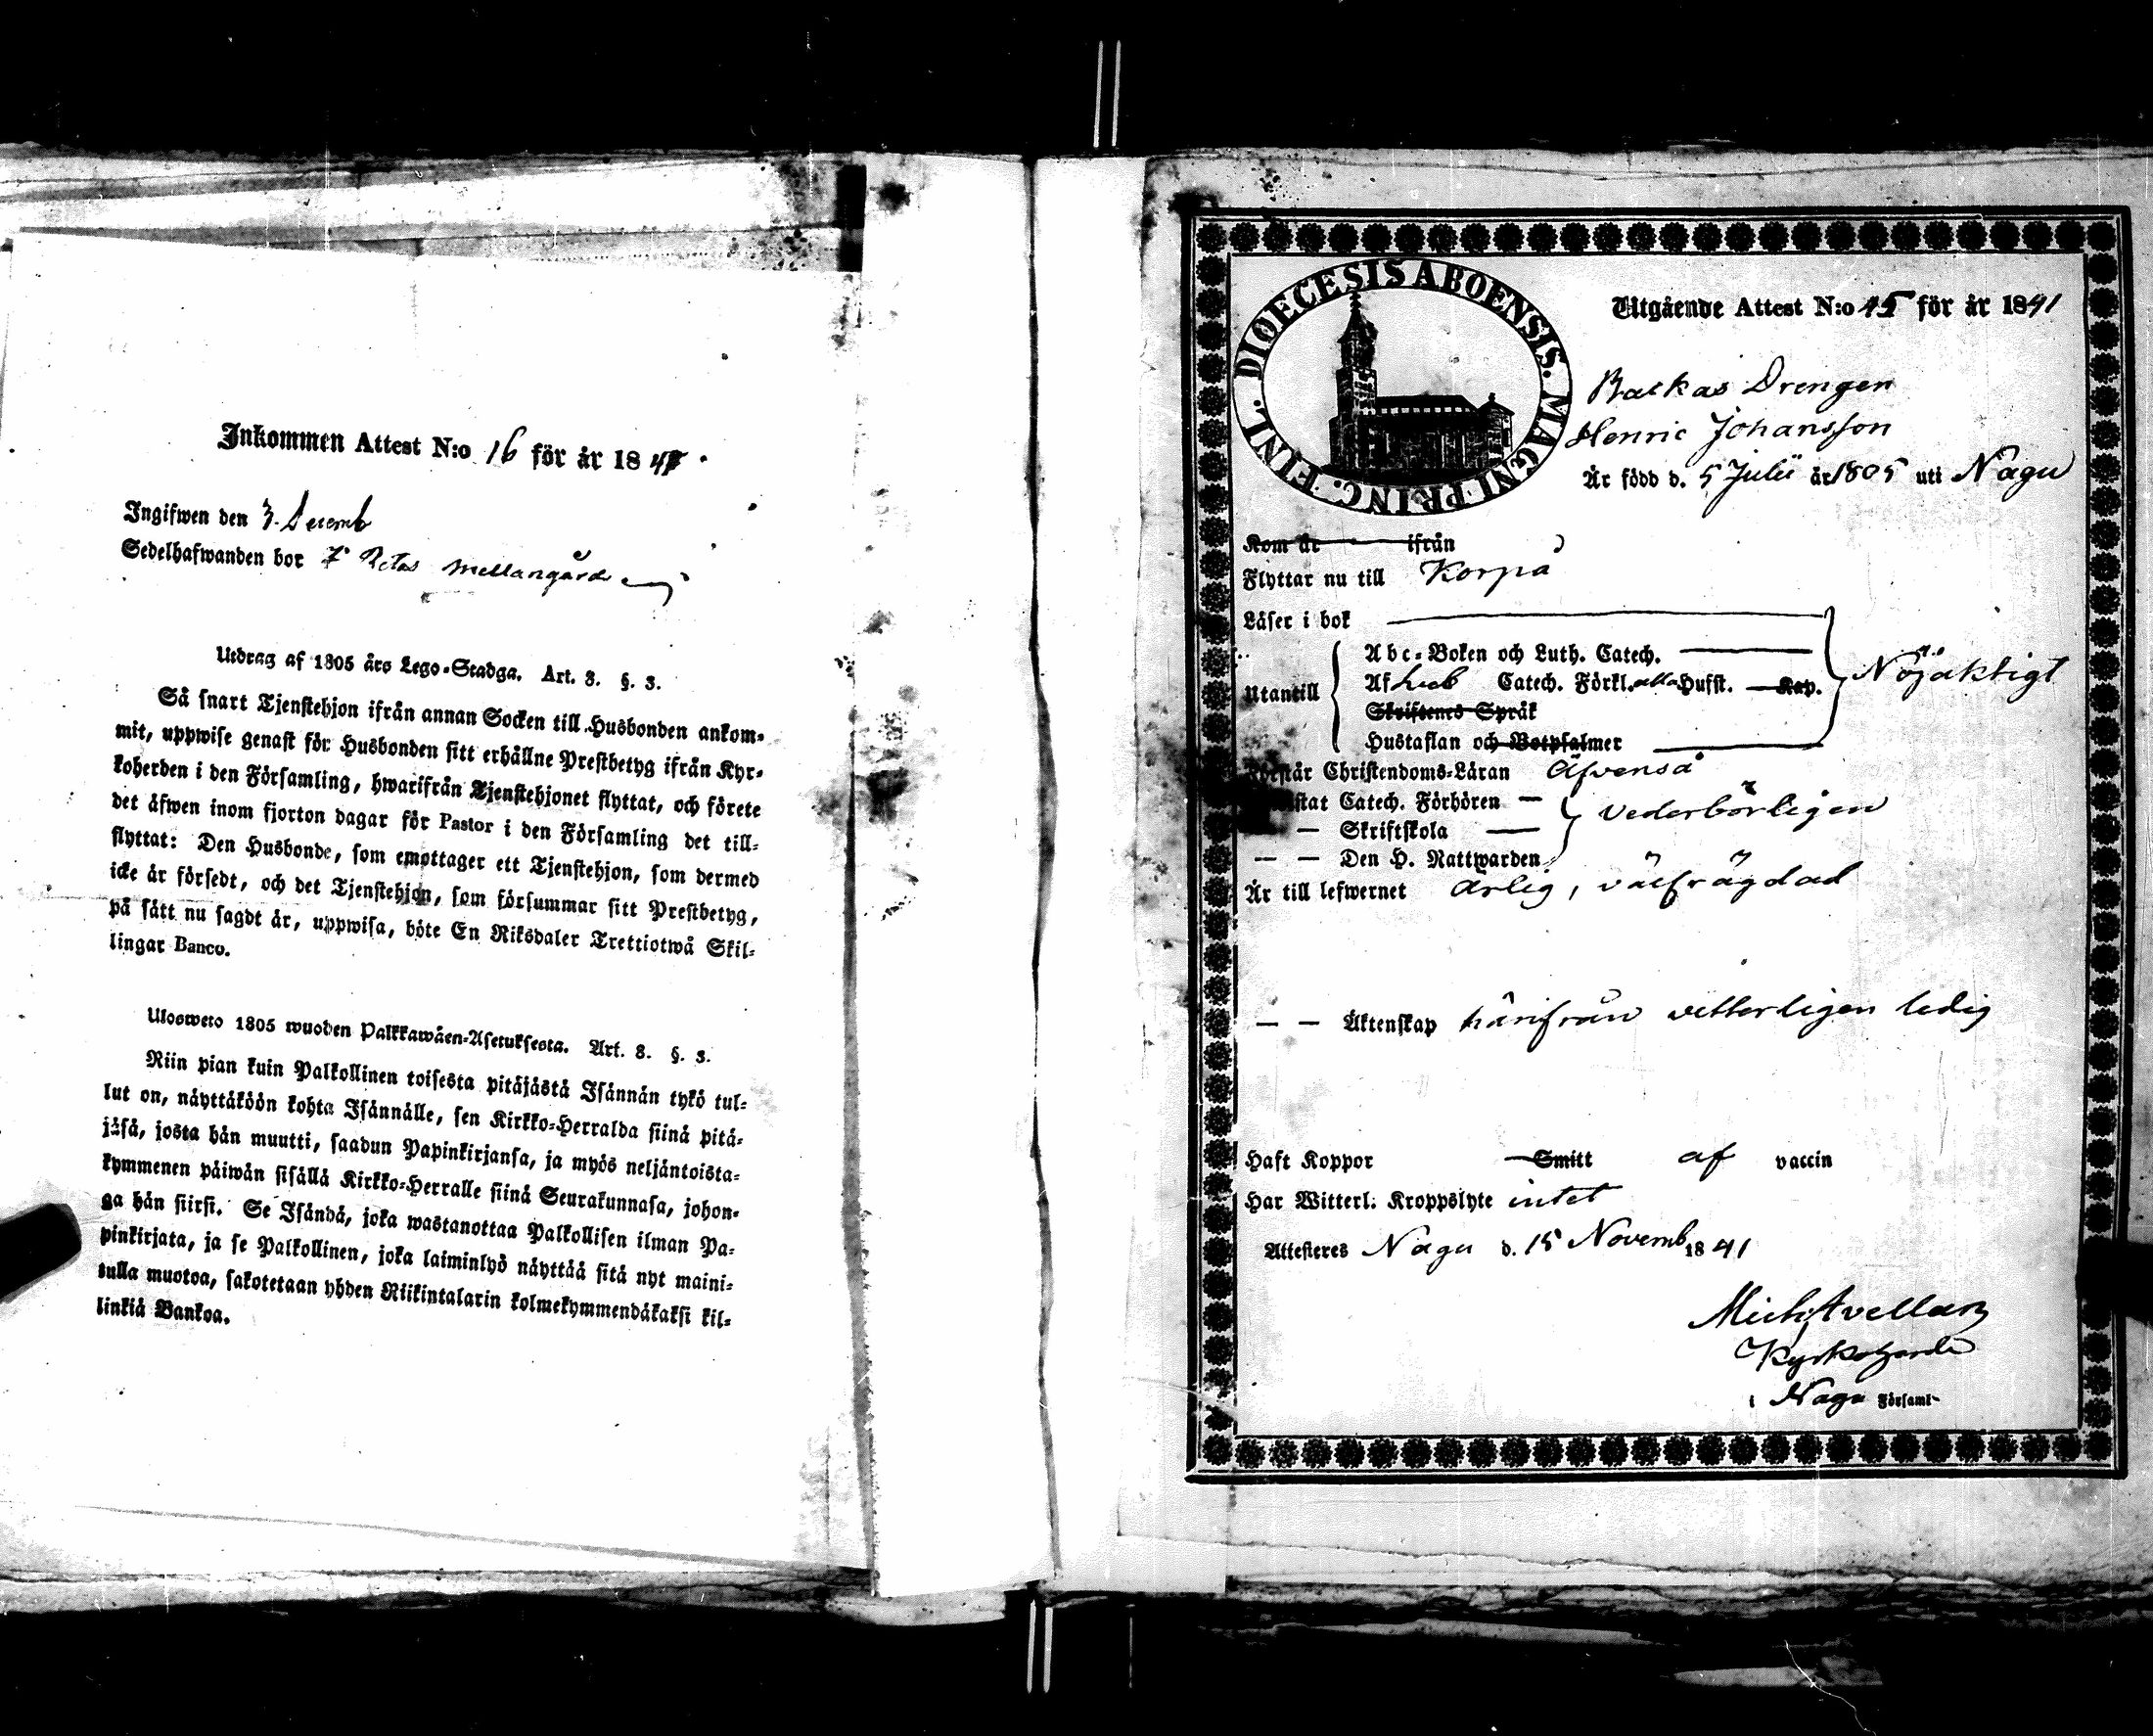 Inkommen Attest N:o 16 för år 1841.
Ingifwen den 3. Decemb
Sedelhafwanden bor Retas mellangård
Utdrag af 1805 års Lego-Stadga. Art. 3. §. 3.
Så snart Tjenstehjon ifrån annan Socken till Husbonden ankom-
mit, uppwise genast för Husbonden sitt erhållne Prestbetyg ifrån Kyr-
koherden i den Församling, hwarifrån Tjenstehjonet flyttat, och förete
det äfwen inom fjorton dagar för Pastor i den Församling det till-
flyttat: Den Husbonde, som emottager ett Tjenstehjon, som dermed
icke är försedt, och det Tjenstehjon, som försummar sitt Prestbetyg,
på sätt nu sagdt är, uppwisa, böte En Riksdaler Trettiotwå Skil-
lingar Banco.
Ulosweto 1805 wuoden Palkkawäen-Asetuksesta. Art. 3. §. 3.
Niin pian kuin Palkollinen toisesta pitäjästä Isännän tykö tul-
lut on, näyttäköön kohta Isännälle, sen Kirkko-Herralda siinä pitä-
jäsä, josta hän muutti, saadun Papinkirjansa, ja myös neljäntoista-
kymmenen päiwän sisällä Kirkko-Herralle siinä Seurakunnasa, johon-
ga hän siirsi. Se Isändä, joka wastanottaa Palkollisen ilman Pa-
pinkirjata, ja se Palkollinen, joka laiminlyö näyttää sitä nyt maini-
tulla muotoa, sakotetaan yhden Riikintalarin kolmekymmendäkaksi kil-
linkiä Bankoa.
DIOECESIS ABOENSIS. MAGNI PRINC. FINL.
Utgående Attest N:o 15 för år 1841
Backas Drengen
Henric Johansson
Är född d. 5 Julii år 1805 uti Nagu
Kom år ifrån
Flyttar nu till Korpå
Läser i bok
Abc-Boken och Luth. Catech.
Utantill Af Catech. Förkl. alla Hufst. Kap. Nöjaktigt
Skriftenes Språk
Hustaflan och Botpsalmer
Förstår Christendoms-Läran Äfvenså
Catech. Förhören — vederbörligen
— Skriftskola
— — Den H. Nattwarden
Är till lefwernet ärlig, välfrägdad
— — Äktenskap härifrån vetterligen ledig
Haft Koppor Smitt af vaccin
Har Witterl. Kroppslyte intet
Attesteres Nagu d. 15 Novemb 1841
Mich Avellan
Kyrkoherde
i Nagu Församl